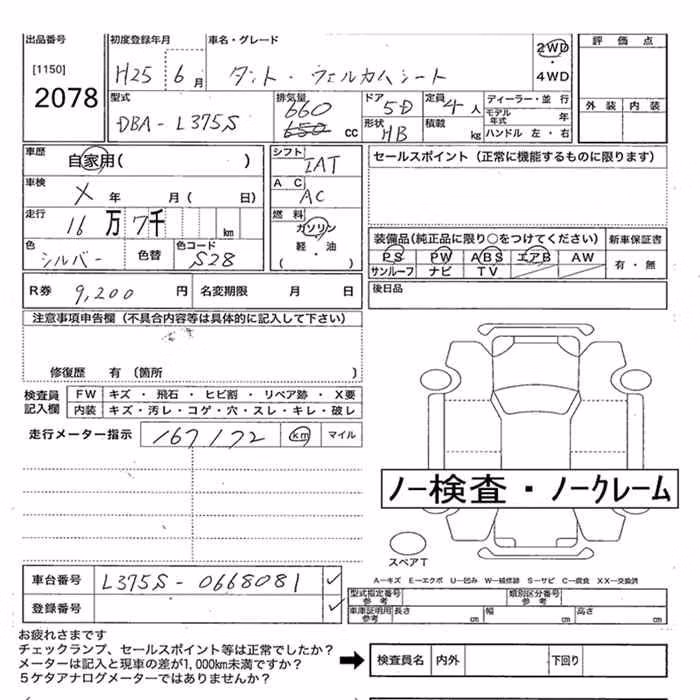 出品番号 初度登録年月 車名・グレード 評価点
[1150] H25 6月 タント・ウェルカムシート 2WD・4WD
2078
型式 排気量 ドア 5D 定員 4人 ディーラー・並行 外装 内装
DBA-L375S 660 650 cc 形状 HB 積載 kg モデル年式 年
ハンドル 左・右
車歴 自家用( ) シフト IAT セールスポイント(正常に機能するものに限ります)
車検 X年 月( 日) AC AC
走行 16万7千 km 燃料 ガソリン
軽・油
( )
色 シルバー 色替 色コード S28
装備品(純正品に限り○をつけてください) 新車保証書
PS PW ABS エアB AW 有・無
サンルーフ ナビ TV
R券 9,200円 名変期限 月 日 後日品
注意事項申告欄(不具合内容等は具体的に記入して下さい)
修復歴 有(箇所 )
検査員記入欄 FW キズ・飛石・ヒビ割・リペア跡・X要
内装 キズ・汚レ・コゲ・穴・スレ・キレ・破レ
走行メーター指示 167172 km マイル
ノー検査・ノークレーム
スペアT
A-キズ E-エクボ U-凹み W-補修跡 S-サビ C-腐食 XX-交換済
車台番号 L375S-0668081 ✓
型式指定番号 参考 類別区分番号 参考
登録番号 ✓
車庫証明用 参考 長さ cm 幅 cm 高さ cm
お疲れさまです
チェックランプ、セールスポイント等は正常でしたか?
メーターは記入と現車の差が1,000km未満ですか?
5ケタアナログメーターではありませんか?
検査員名 内外 下回り